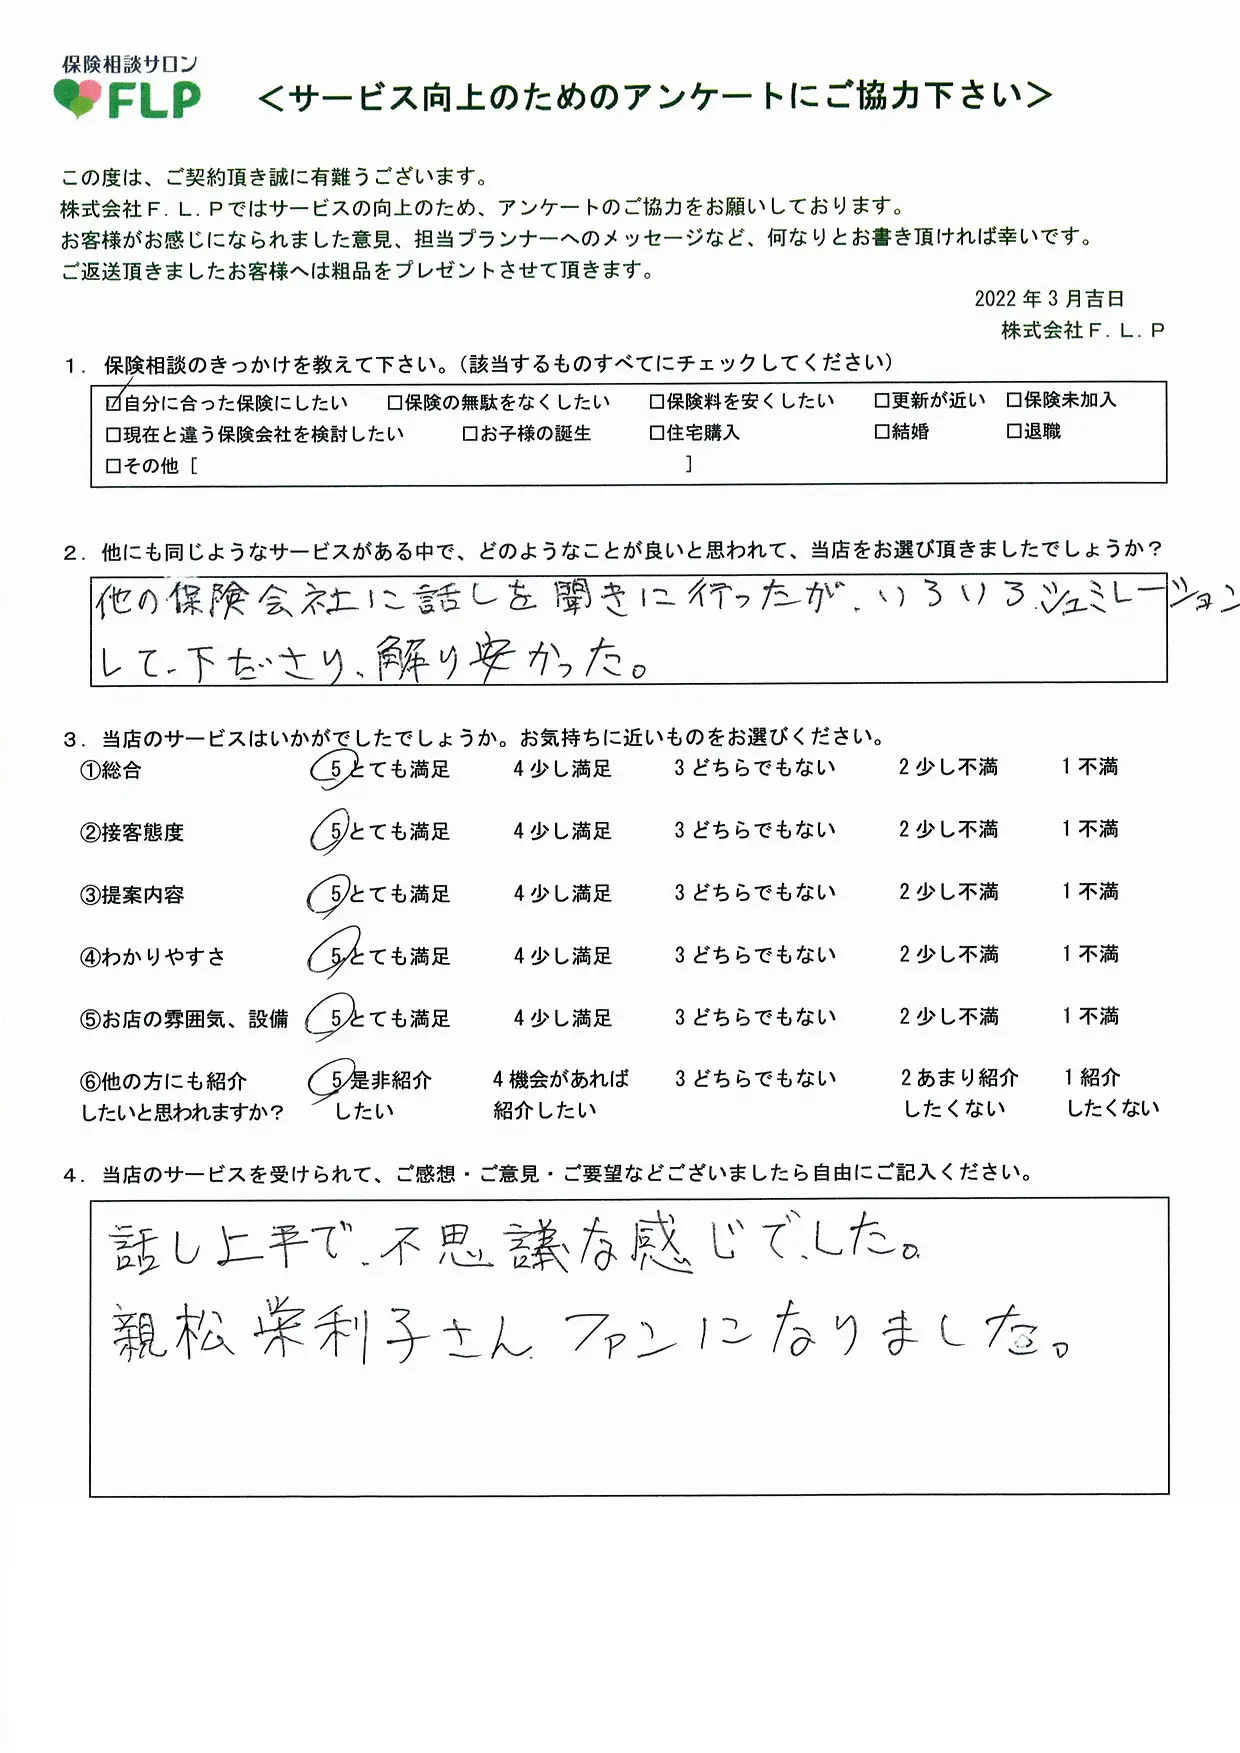 保険相談サロン
FLP
＜サービス向上のためのアンケートにご協力下さい＞
この度は、ご契約頂き誠に有難うございます。
株式会社Ｆ．Ｌ．Ｐではサービスの向上のため、アンケートのご協力をお願いしております。
お客様がお感じになられました意見、担当プランナーへのメッセージなど、何なりとお書き頂ければ幸いです。
ご返送頂きましたお客様へは粗品をプレゼントさせて頂きます。
2022 年 3 月吉日
株式会社Ｆ．Ｌ．Ｐ
１．保険相談のきっかけを教えて下さい。（該当するものすべてにチェックしてください）
☑自分に合った保険にしたい □保険の無駄をなくしたい □保険料を安くしたい □更新が近い □保険未加入
□現在と違う保険会社を検討したい □お子様の誕生 □住宅購入 □結婚 □退職
□その他［ ］
２．他にも同じようなサービスがある中で、どのようなことが良いと思われて、当店をお選び頂きましたでしょうか？
他の保険会社に話しを聞きに行ったが、いろいろシュミレーション
して下ださり、解り安かった。
３．当店のサービスはいかがでしたでしょうか。お気持ちに近いものをお選びください。
①総合 5 とても満足 4 少し満足 3 どちらでもない 2 少し不満 1 不満
②接客態度 5 とても満足 4 少し満足 3 どちらでもない 2 少し不満 1 不満
③提案内容 5 とても満足 4 少し満足 3 どちらでもない 2 少し不満 1 不満
④わかりやすさ 5 とても満足 4 少し満足 3 どちらでもない 2 少し不満 1 不満
⑤お店の雰囲気、設備 5 とても満足 4 少し満足 3 どちらでもない 2 少し不満 1 不満
⑥他の方にも紹介 5 是非紹介 4 機会があれば 3 どちらでもない 2 あまり紹介 1 紹介
したいと思われますか？ したい 紹介したい したくない したくない
４．当店のサービスを受けられて、ご感想・ご意見・ご要望などございましたら自由にご記入ください。
話し上平で、不思議な感じでした。
親松栄利子さん ファンになりました。